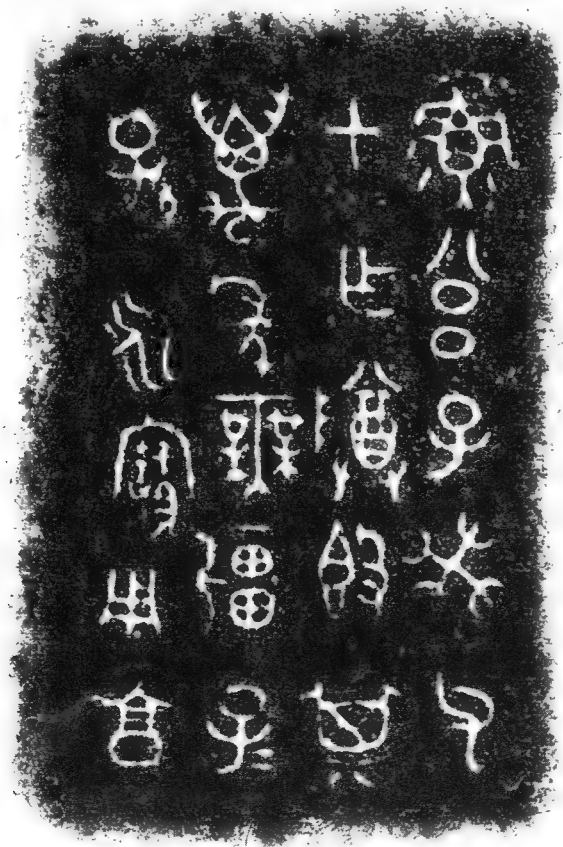 公子癸父
甲乍尊簋其
萬年無疆子
孫永寶用享